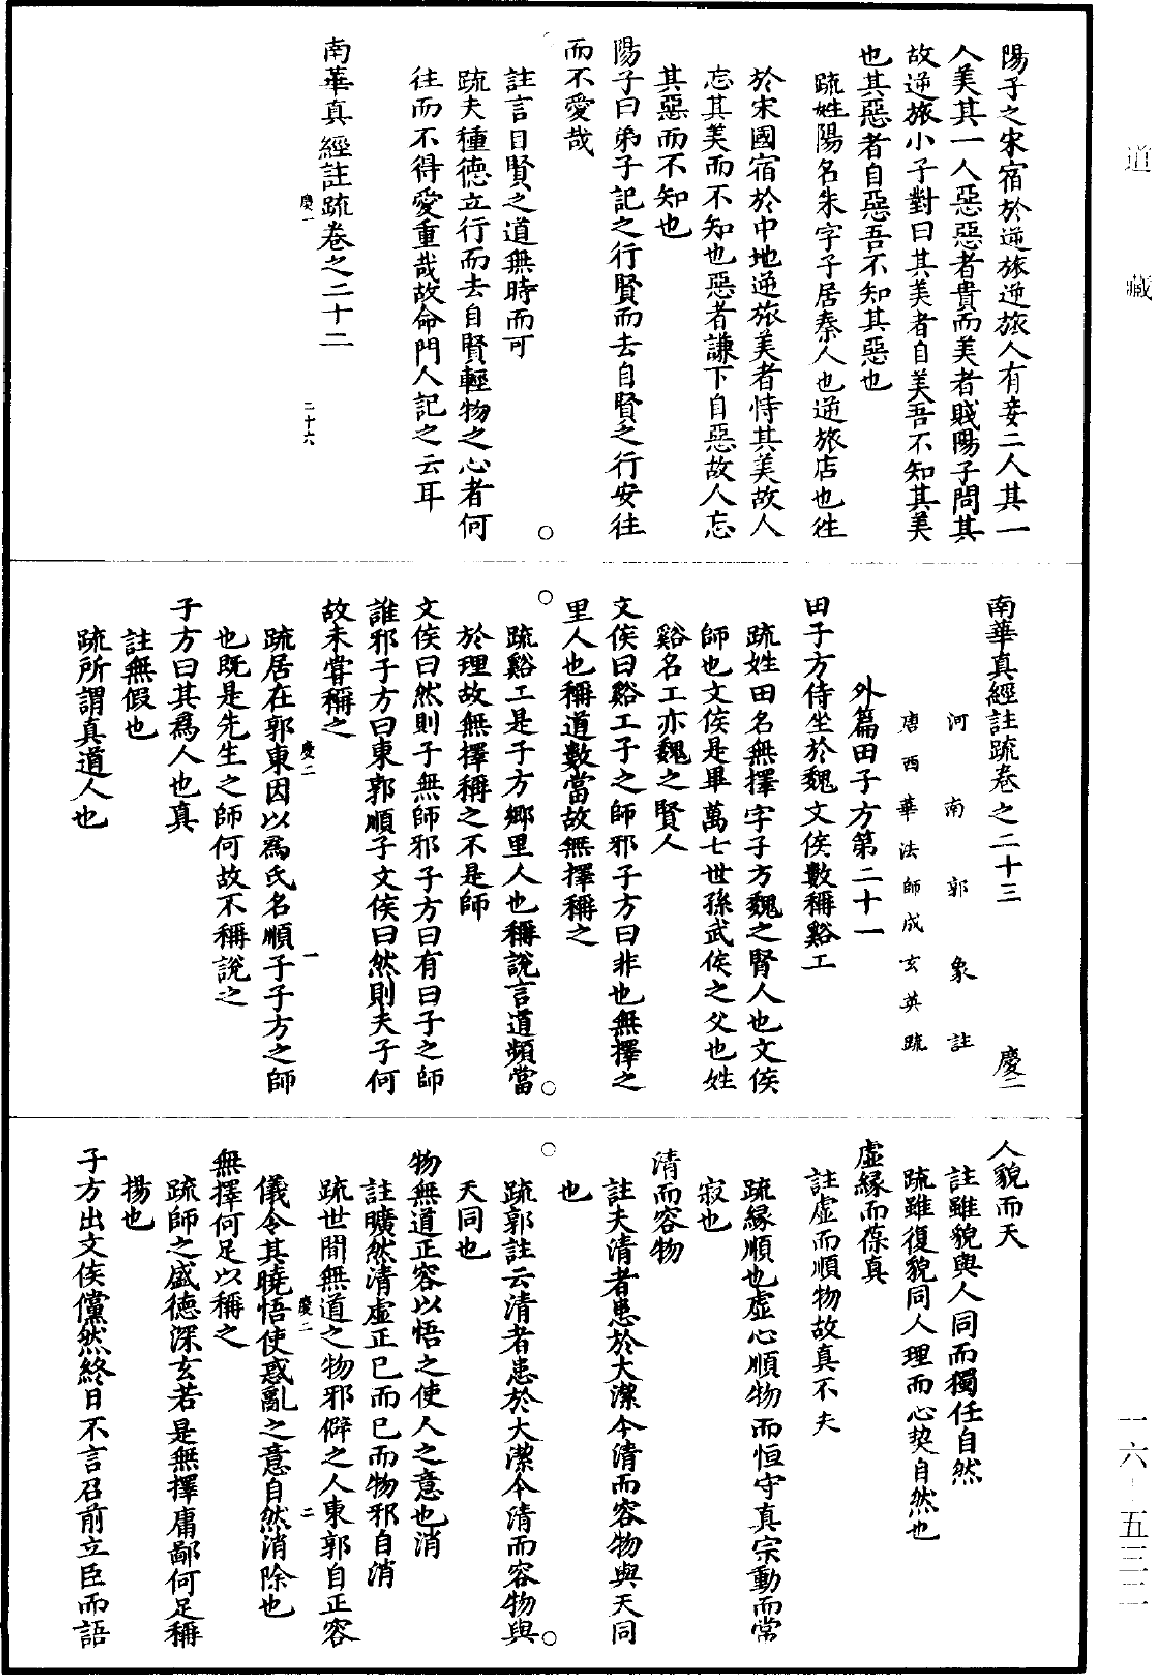 道藏
陽子之宋宿於逆旅逆旅人有妾二人其一
人美其一人惡惡者貴而美者賤陽子問其
故逆旅小子對曰其美者自美吾不知其美
也其惡者自惡吾不知其惡也
疏姓陽名朱字子居秦人也逆旅店也徃
於宋國宿於中地逆旅美者恃其美故人
忘其美而不知也惡者謙下自惡故人忘
其惡而不知也
陽子曰弟子記之行賢而去自賢之行安往
而不愛哉
註言自賢之道無時而可
疏夫種德立行而去自賢輕物之心者何
往而不得愛重哉故命門人記之云耳
南華真經註疏卷之二十二
慶一
二十六
南華真經註疏卷之二十三 慶二
河南郭象註
唐西華法師成玄英疏
外篇田子方第二十一
田子方侍坐於魏文侯數稱谿工
疏姓田名無擇字子方魏之賢人也文侯
師也文侯是畢萬七世孫武侯之父也姓
谿名工亦魏之賢人
文侯曰谿工子之師邪子方曰非也無擇之
里人也稱道數當故無擇稱之
疏谿工是子方鄉里人也稱說言道頻當
於理故無擇稱之不是師
文侯曰然則子無師邪子方曰有曰子之師
誰邪子方曰東郭順子文侯曰然則夫子何
故未甞稱之
慶二
一
疏居在郭東因以為氏名順子子方之師
也既是先生之師何故不稱說之
子方曰其為人也真
註無假也
疏所謂真道人也
人貌而天
註雖貌與人同而獨任自然
疏雖復貌同人理而心契自然也
虛緣而葆真
註虛而順物故真不夫
疏緣順也虛心順物而恒守真宗動而常
寂也
清而容物
註夫清者患於大潔今清而容物與天同
也
疏郭註云清者患於大潔今清而容物與
天同也
物無道正容以悟之使人之意也消
註曠然清虛正己而已而物邪自消
疏世間無道之物邪僻之人東郭自正容
慶二
二
儀令其曉悟使惑亂之意自然消除也
無擇何足以稱之
疏師之盛德深玄若是無擇庸鄙何足稱
揚也
子方出文侯儻然終日不言召前立臣而語
一六-五三二